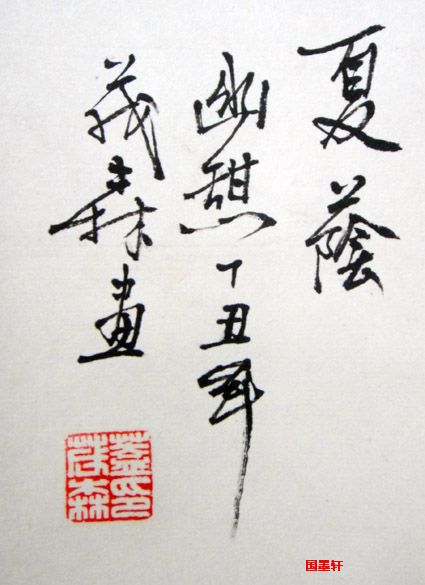 夏蔭
幽憩丁丑年
茂森畫
蓋印
茂森
国墨轩